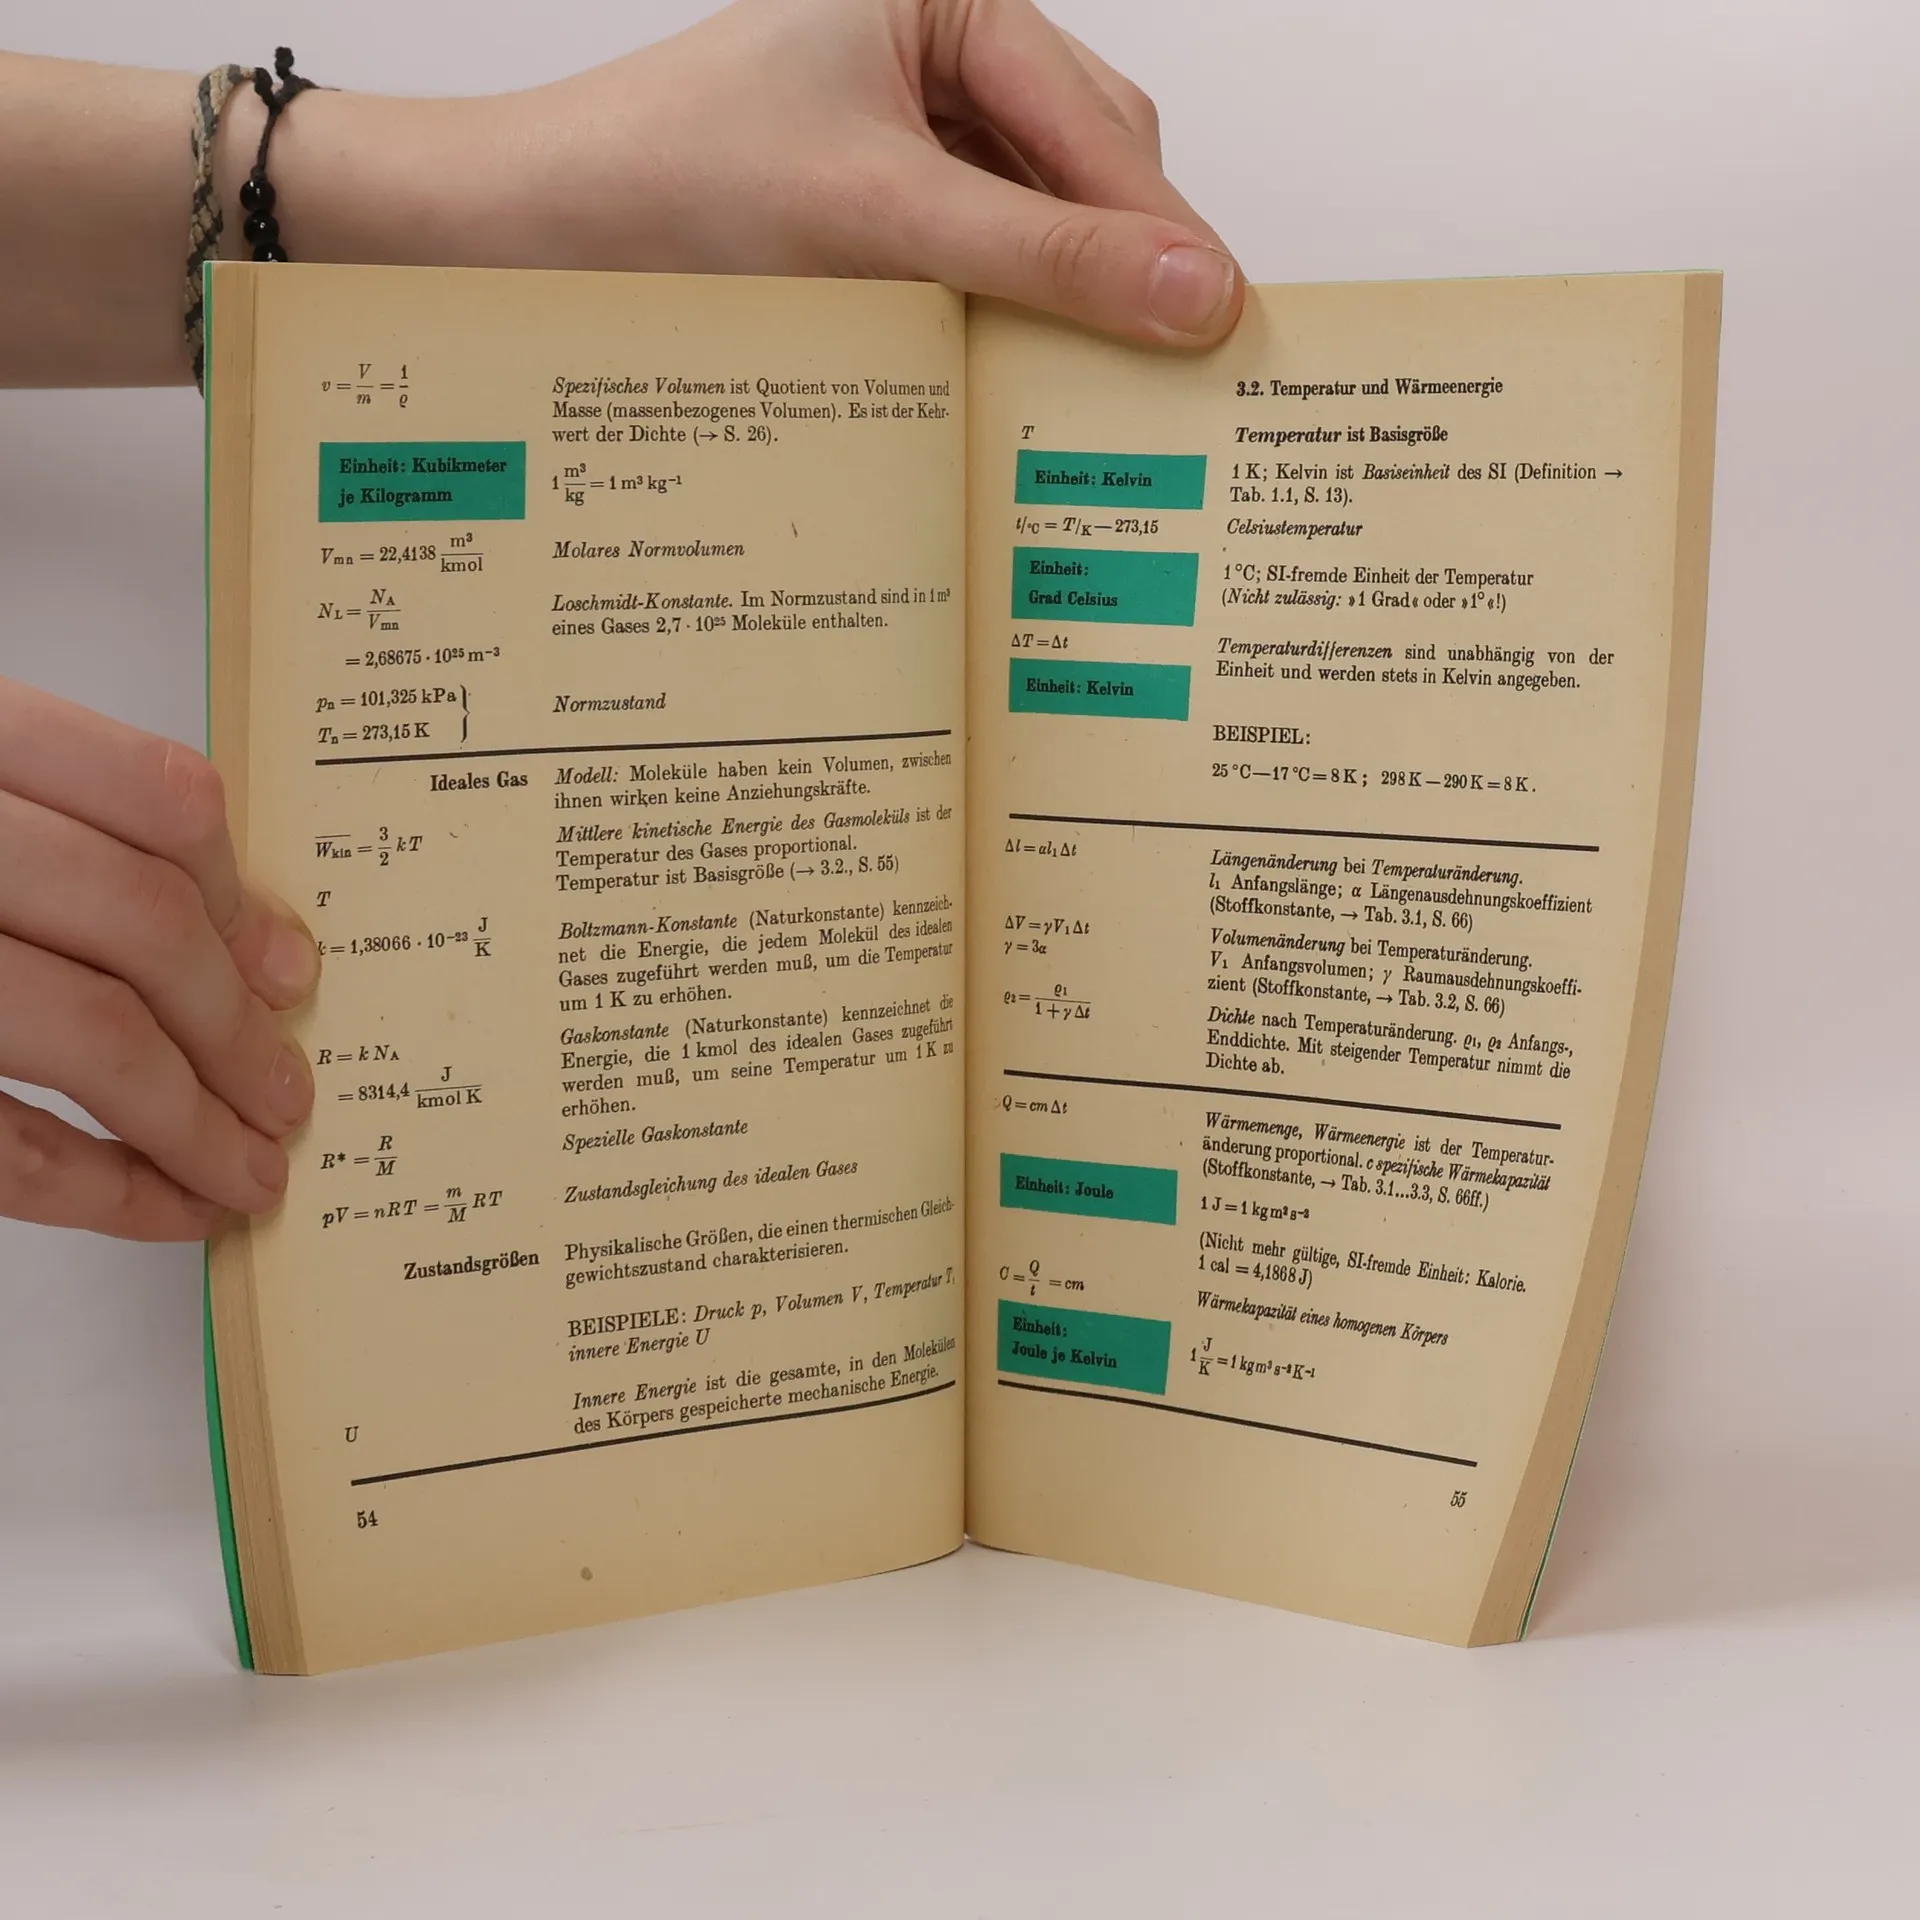 v = V/m = 1/ϱ
Spezifisches Volumen ist Quotient von Volumen und
Masse (massenbezogenes Volumen). Es ist der Kehr-
wert der Dichte (→ S. 26).
Einheit: Kubikmeter
je Kilogramm
1 m³/kg = 1 m³ kg⁻¹
Vmn = 22,4138 m³/kmol
Molares Normvolumen
NL = NA/Vmn
= 2,68675 · 10²⁵ m⁻³
Loschmidt-Konstante. Im Normzustand sind in 1 m³
eines Gases 2,7 · 10²⁵ Moleküle enthalten.
pn = 101,325 kPa
Tn = 273,15 K
Normzustand
Ideales Gas
Modell: Moleküle haben kein Volumen, zwischen
ihnen wirken keine Anziehungskräfte.
W̅kin = 3/2 kT
Mittlere kinetische Energie des Gasmoleküls ist der
Temperatur des Gases proportional.
T
Temperatur ist Basisgröße (→ 3.2., S. 55)
k = 1,38066 · 10⁻²³ J/K
Boltzmann-Konstante (Naturkonstante) kennzeich-
net die Energie, die jedem Molekül des idealen
Gases zugeführt werden muß, um die Temperatur
um 1 K zu erhöhen.
R = k NA
= 8314,4 J/kmol K
Gaskonstante (Naturkonstante) kennzeichnet die
Energie, die 1 kmol des idealen Gases zugeführt
werden muß, um seine Temperatur um 1 K zu
erhöhen.
R* = R/M
Spezielle Gaskonstante
pV = nRT = m/M RT
Zustandsgleichung des idealen Gases
Zustandsgrößen
Physikalische Größen, die einen thermischen Gleich-
gewichtszustand charakterisieren.
BEISPIELE: Druck p, Volumen V, Temperatur T,
innere Energie U
U
Innere Energie ist die gesamte, in den Molekülen
des Körpers gespeicherte mechanische Energie.
54
3.2. Temperatur und Wärmeenergie
T
Temperatur ist Basisgröße
Einheit: Kelvin
1 K; Kelvin ist Basiseinheit des SI (Definition →
Tab. 1.1, S. 13).
t/°C = T/K — 273,15
Celsiustemperatur
Einheit:
Grad Celsius
1 °C; SI-fremde Einheit der Temperatur
(Nicht zulässig: »1 Grad« oder »1°«!)
ΔT = Δt
Einheit: Kelvin
Temperaturdifferenzen sind unabhängig von der
Einheit und werden stets in Kelvin angegeben.
BEISPIEL:
25 °C — 17 °C = 8 K; 298 K — 290 K = 8 K.
Δl = αl₁ Δt
Längenänderung bei Temperaturänderung.
l₁ Anfangslänge; α Längenausdehnungskoeffizient
(Stoffkonstante, → Tab. 3.1, S. 66)
ΔV = γV₁ Δt
γ = 3α
Volumenänderung bei Temperaturänderung.
V₁ Anfangsvolumen; γ Raumausdehnungskoeffi-
zient (Stoffkonstante, → Tab. 3.2, S. 66)
ϱ₂ = ϱ₁/1 + γ Δt
Dichte nach Temperaturänderung. ϱ₁, ϱ₂ Anfangs-,
Enddichte. Mit steigender Temperatur nimmt die
Dichte ab.
Q = cm Δt
Wärmemenge, Wärmeenergie ist der Temperatur-
änderung proportional. c spezifische Wärmekapazität
(Stoffkonstante, → Tab. 3.1...3.3, S. 66ff.)
Einheit: Joule
1 J = 1 kg m² s⁻²
(Nicht mehr gültige, SI-fremde Einheit: Kalorie.
1 cal = 4,1868 J)
C = Q/t = cm
Wärmekapazität eines homogenen Körpers
Einheit:
Joule je Kelvin
1 J/K = 1 kg m² s⁻² K⁻¹
55